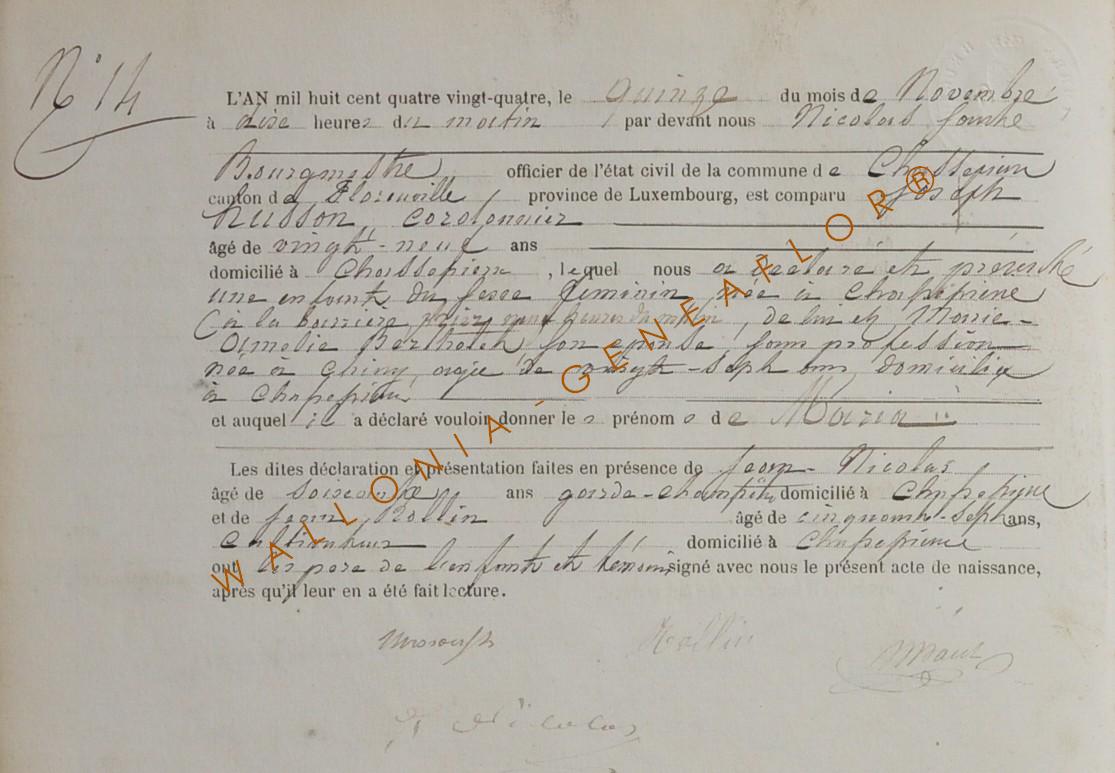 N° 14
L'AN mil huit cent quatre vingt-quatre, le quinze du mois de Novembre
à dix heures du matin par devant nous Nicolas
Bourgmestre officier de l'état civil de la commune de Chassepierre
canton de Florenville province de Luxembourg, est comparu Joseph
Husson, cordonnier
âgé de vingt-neuf ans
domicilié à Chassepierre, lequel nous a déclaré et présenté
une enfant du sexe féminin, née à Chassepierre
(à la barrière heures du matin, de lui et Marie-
Amélie son épouse sans profession
née à Chiny, agée de vingt-sept ans, domiciliée
à Chassepierre
et auquel il a déclaré vouloir donner le s prénom s de Maria
Les dites déclaration et présentation faites en présence de Jean-Nicolas
âgé de soixante ans garde-champêtre domicilié à Chassepierre
et de Jean Rollin âgé de cinquante-sept ans,
cultivateur domicilié à Chassepierre
ont les père de l'enfant et témoins signé avec nous le présent acte de naissance,
après qu'il leur en a été fait lecture.
Rollin
Nicolas
WALLONIA-GENEAFLOR®